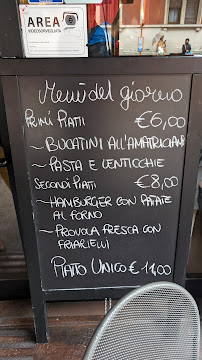 AREA
VIDEOSORVEGLIATA
Menù del giorno
PRIMI PIATTI €6,00
~BUCATINI ALL'AMATRICIANA
~PASTA E LENTICCHIE
SECONDI PIATTI €8,00
~HAMBURGER CON PATATE
AL FORNO
~PROVOLA FRESCA CON
FRIARIELLI
PIATTO UNICO €11,00